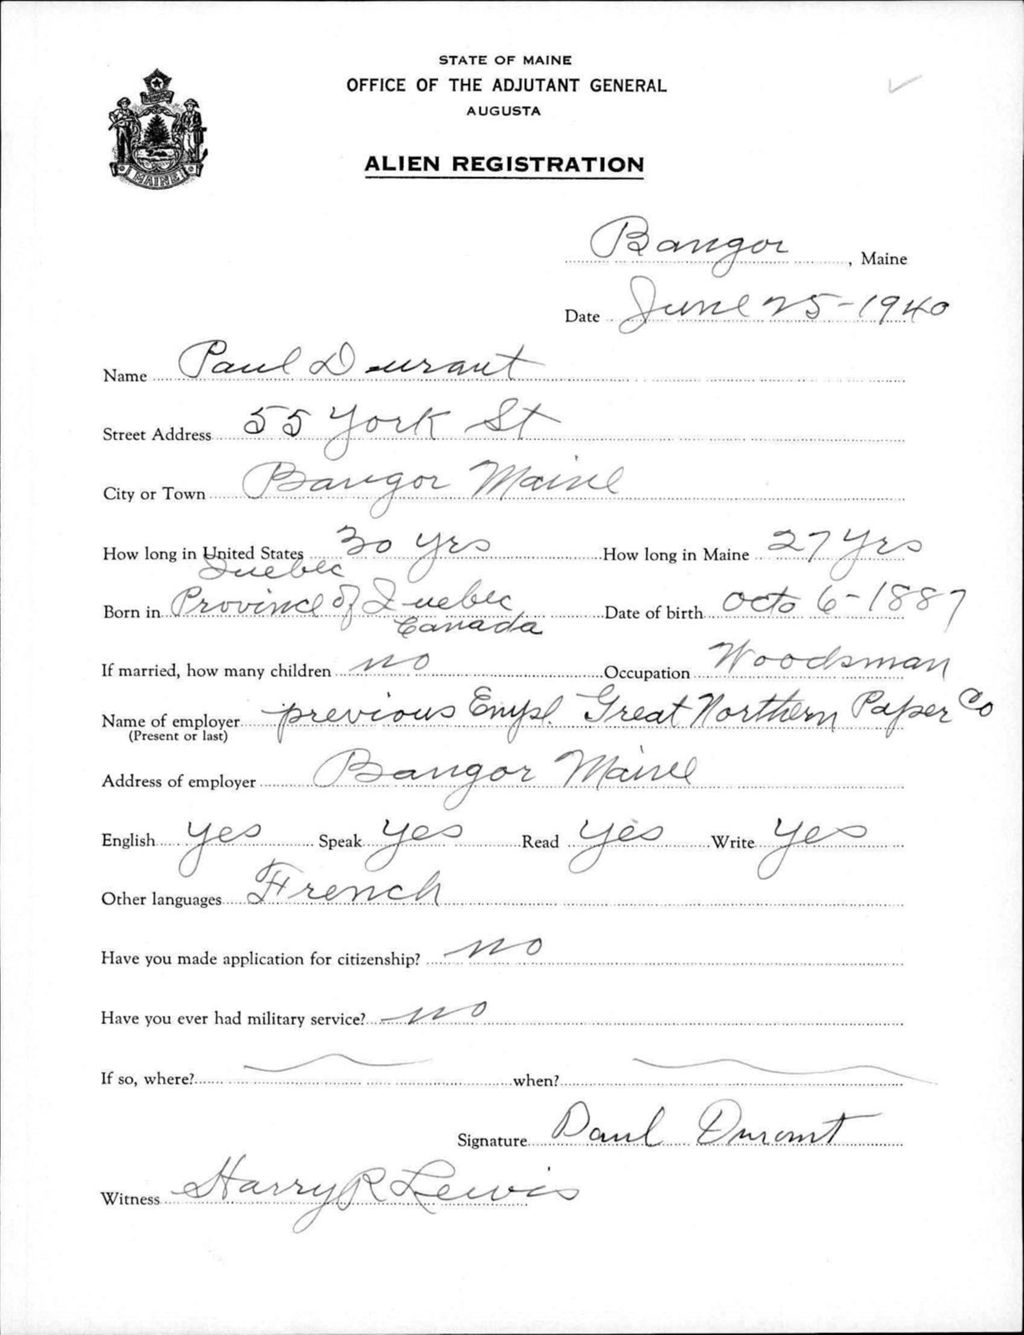 STATE OF MAINE
OFFICE OF THE ADJUTANT GENERAL
AUGUSTA
ALIEN REGISTRATION
MAINE
Bangor, Maine
Date June 25-1940
Name Paul Durant
Street Address 55 York St
City or Town Bangor Maine
How long in United States 30 yrs How long in Maine 27 yrs
Quebec
Born in Province of Quebec Date of birth Octo 6-1887
Canada
If married, how many children no Occupation Woodsman
Name of employer previous Empl. Great Northern Paper Co
(Present or last)
Address of employer Bangor Maine
English yes Speak yes Read yes Write yes
Other languages French
Have you made application for citizenship? no
Have you ever had military service? no
If so, where? when?
Signature Paul Durant
Witness Harry R Lewis